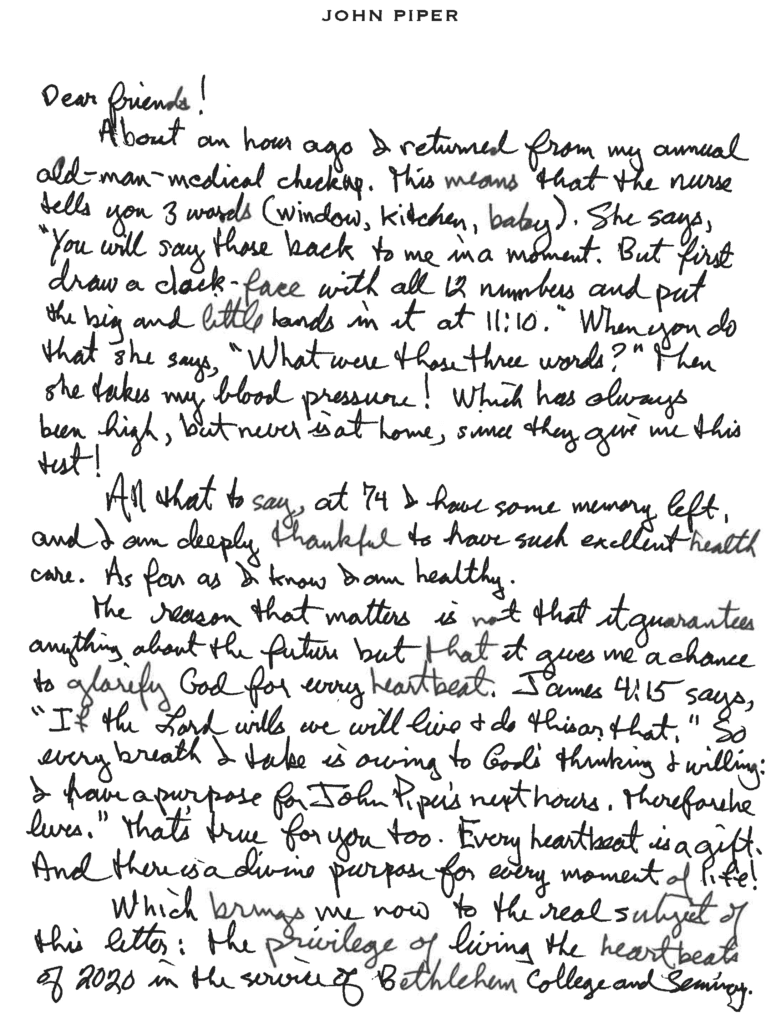 JOHN PIPER
Dear friends!
About an hour ago I returned from my annual
old-man-medical checkup. This means that the nurse
tells you 3 words (window, kitchen, baby). She says,
"You will say those back to me in a moment. But first
draw a clock-face with all 12 numbers and put
the big and little hands in it at 11:10." When you do
that she says, "What were those three words?" Then
she takes my blood pressure! Which has always
been high, but never is at home, since they give me this
test!
All that to say, at 74 I have some memory left,
and I am deeply thankful to have such excellent health
care. As far as I know I am healthy.
The reason that matters is not that it guarantees
anything about the future but that it gives me a chance
to glorify God for every heartbeat. James 4:15 says,
"If the Lord wills we will live & do this or that." So
every breath I take is owing to God's thinking & willing:
I have a purpose for John Piper's next hours. Therefore he
lives." That's true for you too. Every heartbeat is a gift.
And there is a divine purpose for every moment of life!
Which brings me now to the real subject of
this letter: the privilege of living the heartbeats
of 2020 in the service of Bethlehem College and Seminary.